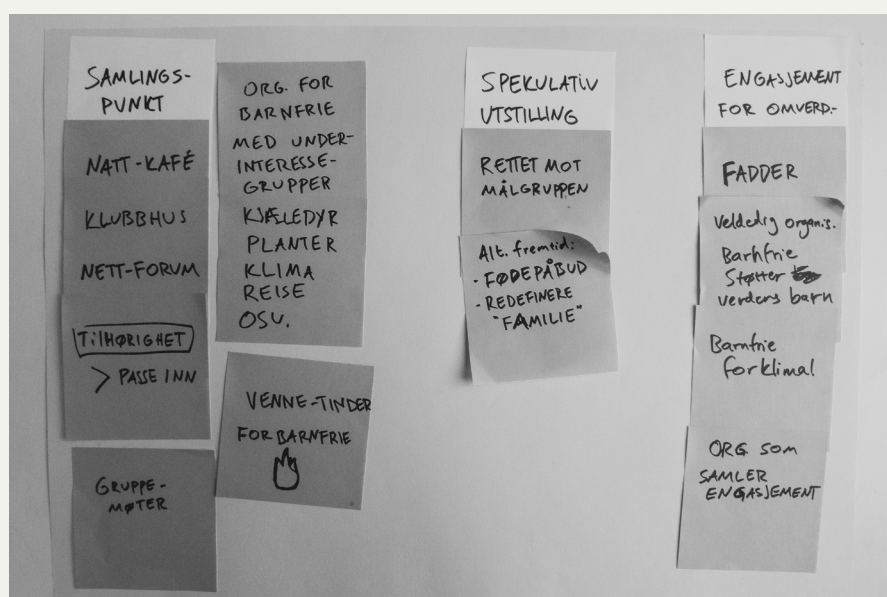 SAMLINGS-
PUNKT
NATT-KAFÉ
KLUBBHUS
NETT-FORUM
TILHØRIGHET
> PASSE INN
GRUPPE-
MØTER
ORG. FOR
BARNFRIE
MED UNDER-
INTERESSE-
GRUPPER
KJÆLEDYR
PLANTER
KLIMA
REISE
OSV.
VENNE-TINDER
FOR BARNFRIE
SPEKULATIV
UTSTILLING
RETTET MOT
MÅLGRUPPEN
Alt. fremtid:
- FØDEPÅBUD
- REDEFINERE
"FAMILIE"
ENGASJEMENT
FOR OMVERD.-
FADDER
Veldedig organis.
Barnfrie
Støtter
verdens barn
Barnfrie
for klima!
ORG. SOM
SAMLER
ENGASJEMENT